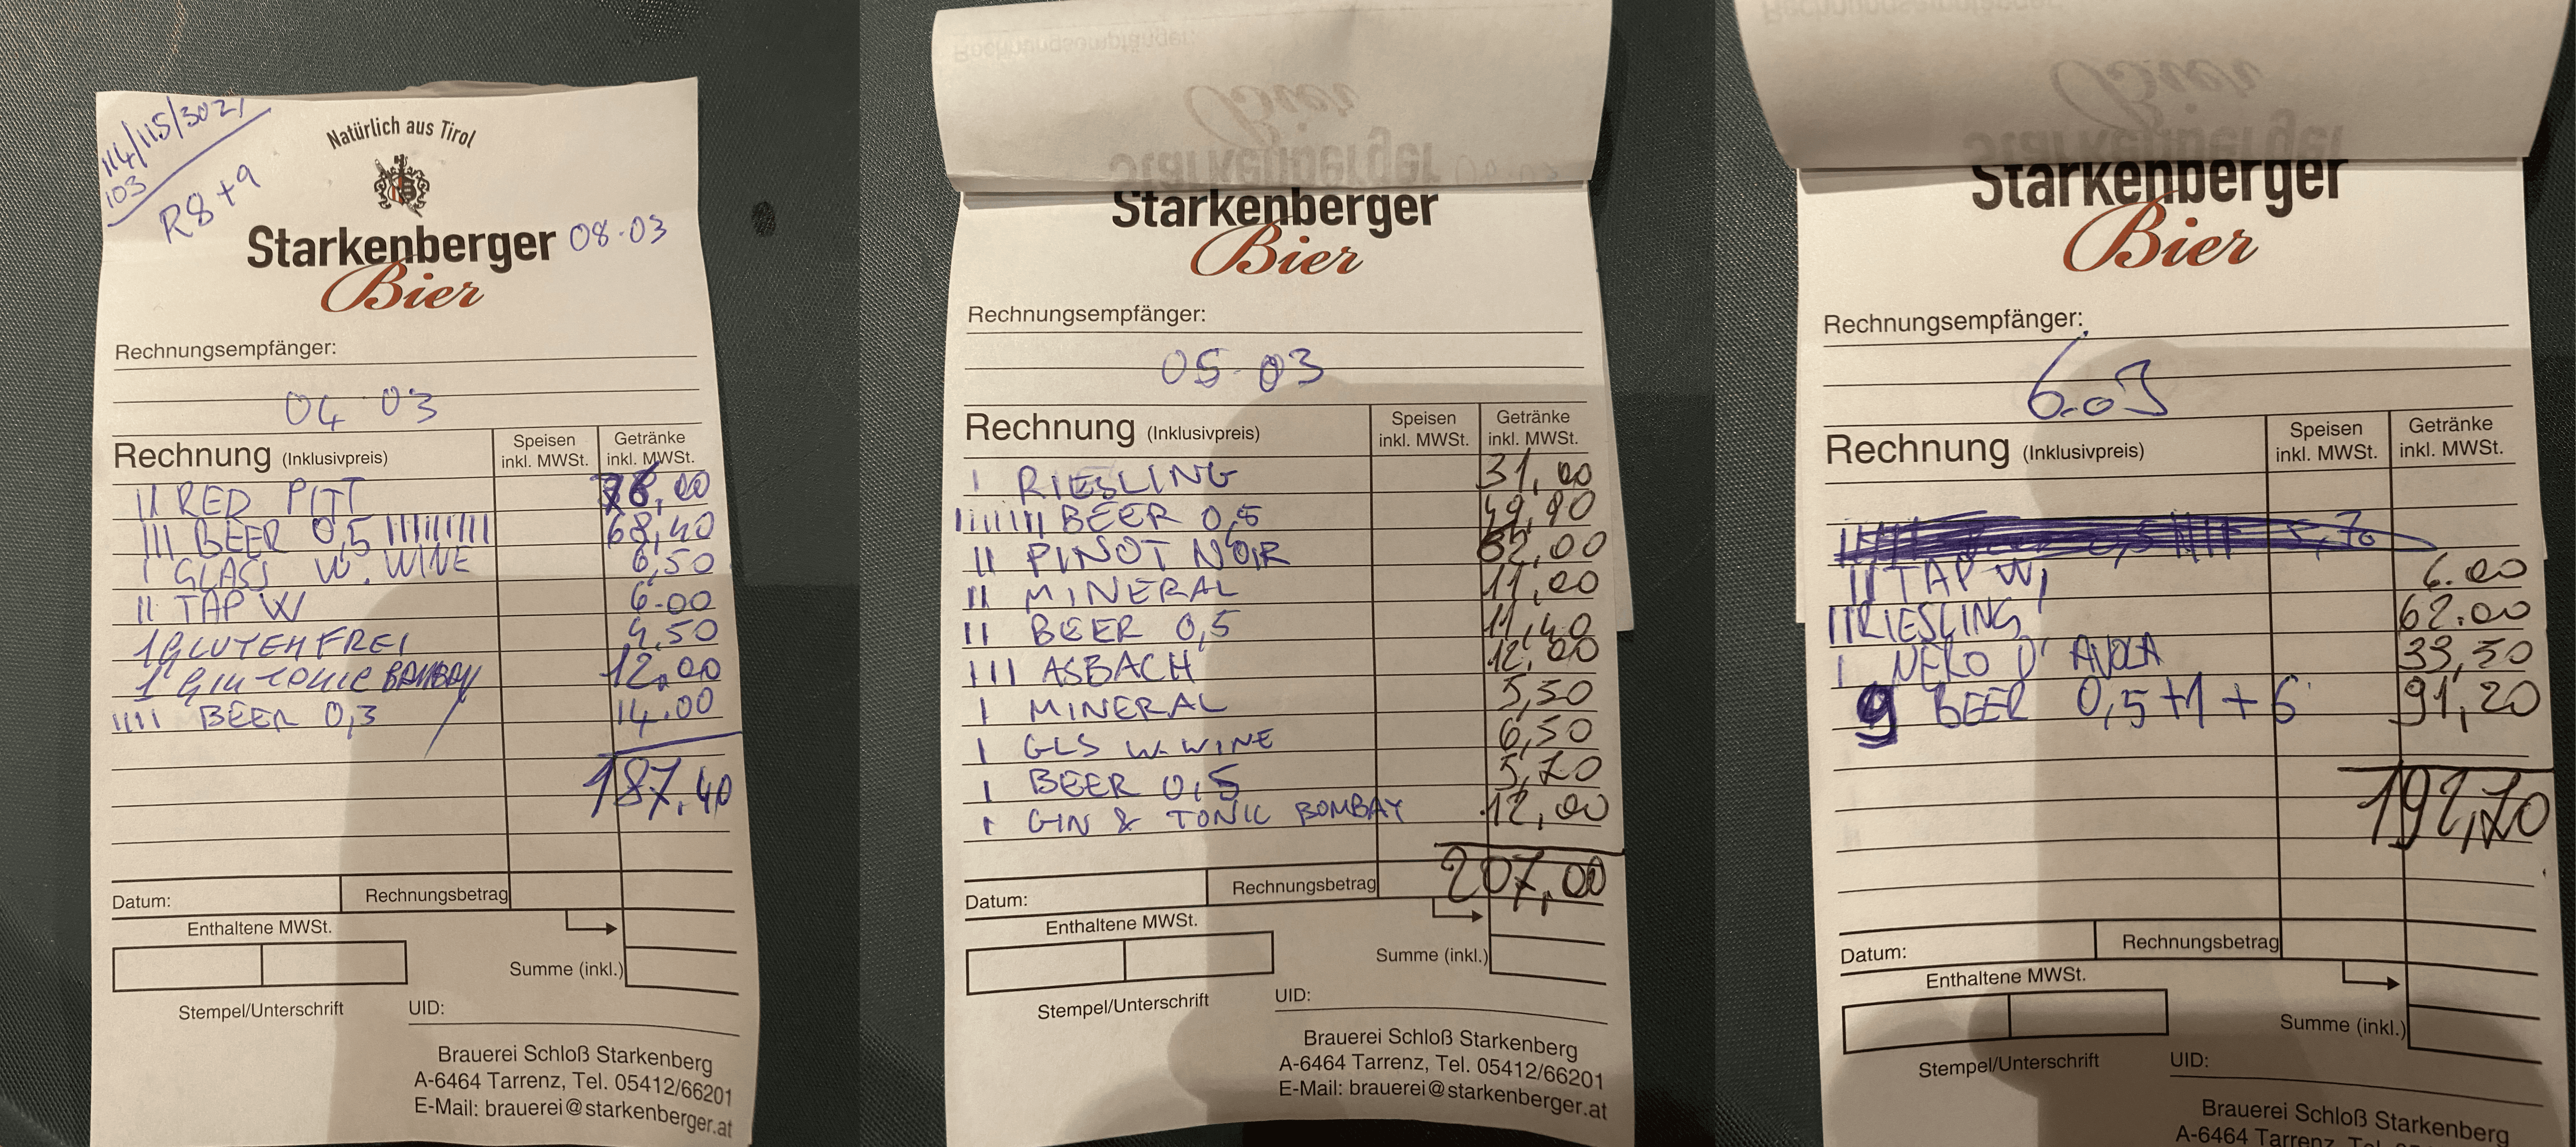 114/115/302/
103
R8+9
Natürlich aus Tirol
Starkenberger 08.03
Bier
Rechnungsempfänger:
04 03
Rechnung (Inklusivpreis) Speisen inkl. MWSt. Getränke inkl. MWSt.
II RED PITT 76,00
III BEER 0,5 IIIIIIIII 68,40
I GLASS W. WINE 6,50
II TAP W 6.00
1 GLUTEN FREI 4,50
1 GIN TONIC BAMBAY 12,00
IIII BEER 0,3 14.00
187,40
Datum: Rechnungsbetrag
Enthaltene MWSt.
Summe (inkl.)
Stempel/Unterschrift UID:
Brauerei Schloß Starkenberg
A-6464 Tarrenz, Tel. 05412/66201
E-Mail: brauerei@starkenberger.at
Starkenberger
Bier
Rechnungsempfänger:
05 03
Rechnung (Inklusivpreis) Speisen inkl. MWSt. Getränke inkl. MWSt.
I RIESLING 31,00
BEER 0,5 49,90
II PINOT NOIR 62,00
II MINERAL 11,00
II BEER 0,5 11,40
III ASBACH 12,00
I MINERAL 5,50
I GLS W. WINE 6,50
I BEER 0,5 5,70
I GIN & TONIC BOMBAY 12,00
207,00
Datum: Rechnungsbetrag
Enthaltene MWSt.
Summe (inkl.)
Stempel/Unterschrift UID:
Brauerei Schloß Starkenberg
A-6464 Tarrenz, Tel. 05412/66201
E-Mail: brauerei@starkenberger.at
Starkenberger
Bier
Rechnungsempfänger:
6.03
Rechnung (Inklusivpreis) Speisen inkl. MWSt. Getränke inkl. MWSt.
0,5 5,70
II TAP W, 6.00
II RIESLING 62.00
I NERO D'AVOLA 33,50
9 BEER 0,5 +1 + 6 91,20
192,70
Datum: Rechnungsbetrag
Enthaltene MWSt.
Summe (inkl.)
Stempel/Unterschrift UID:
Brauerei Schloß Starkenberg
A-6464 Tarrenz, Tel.